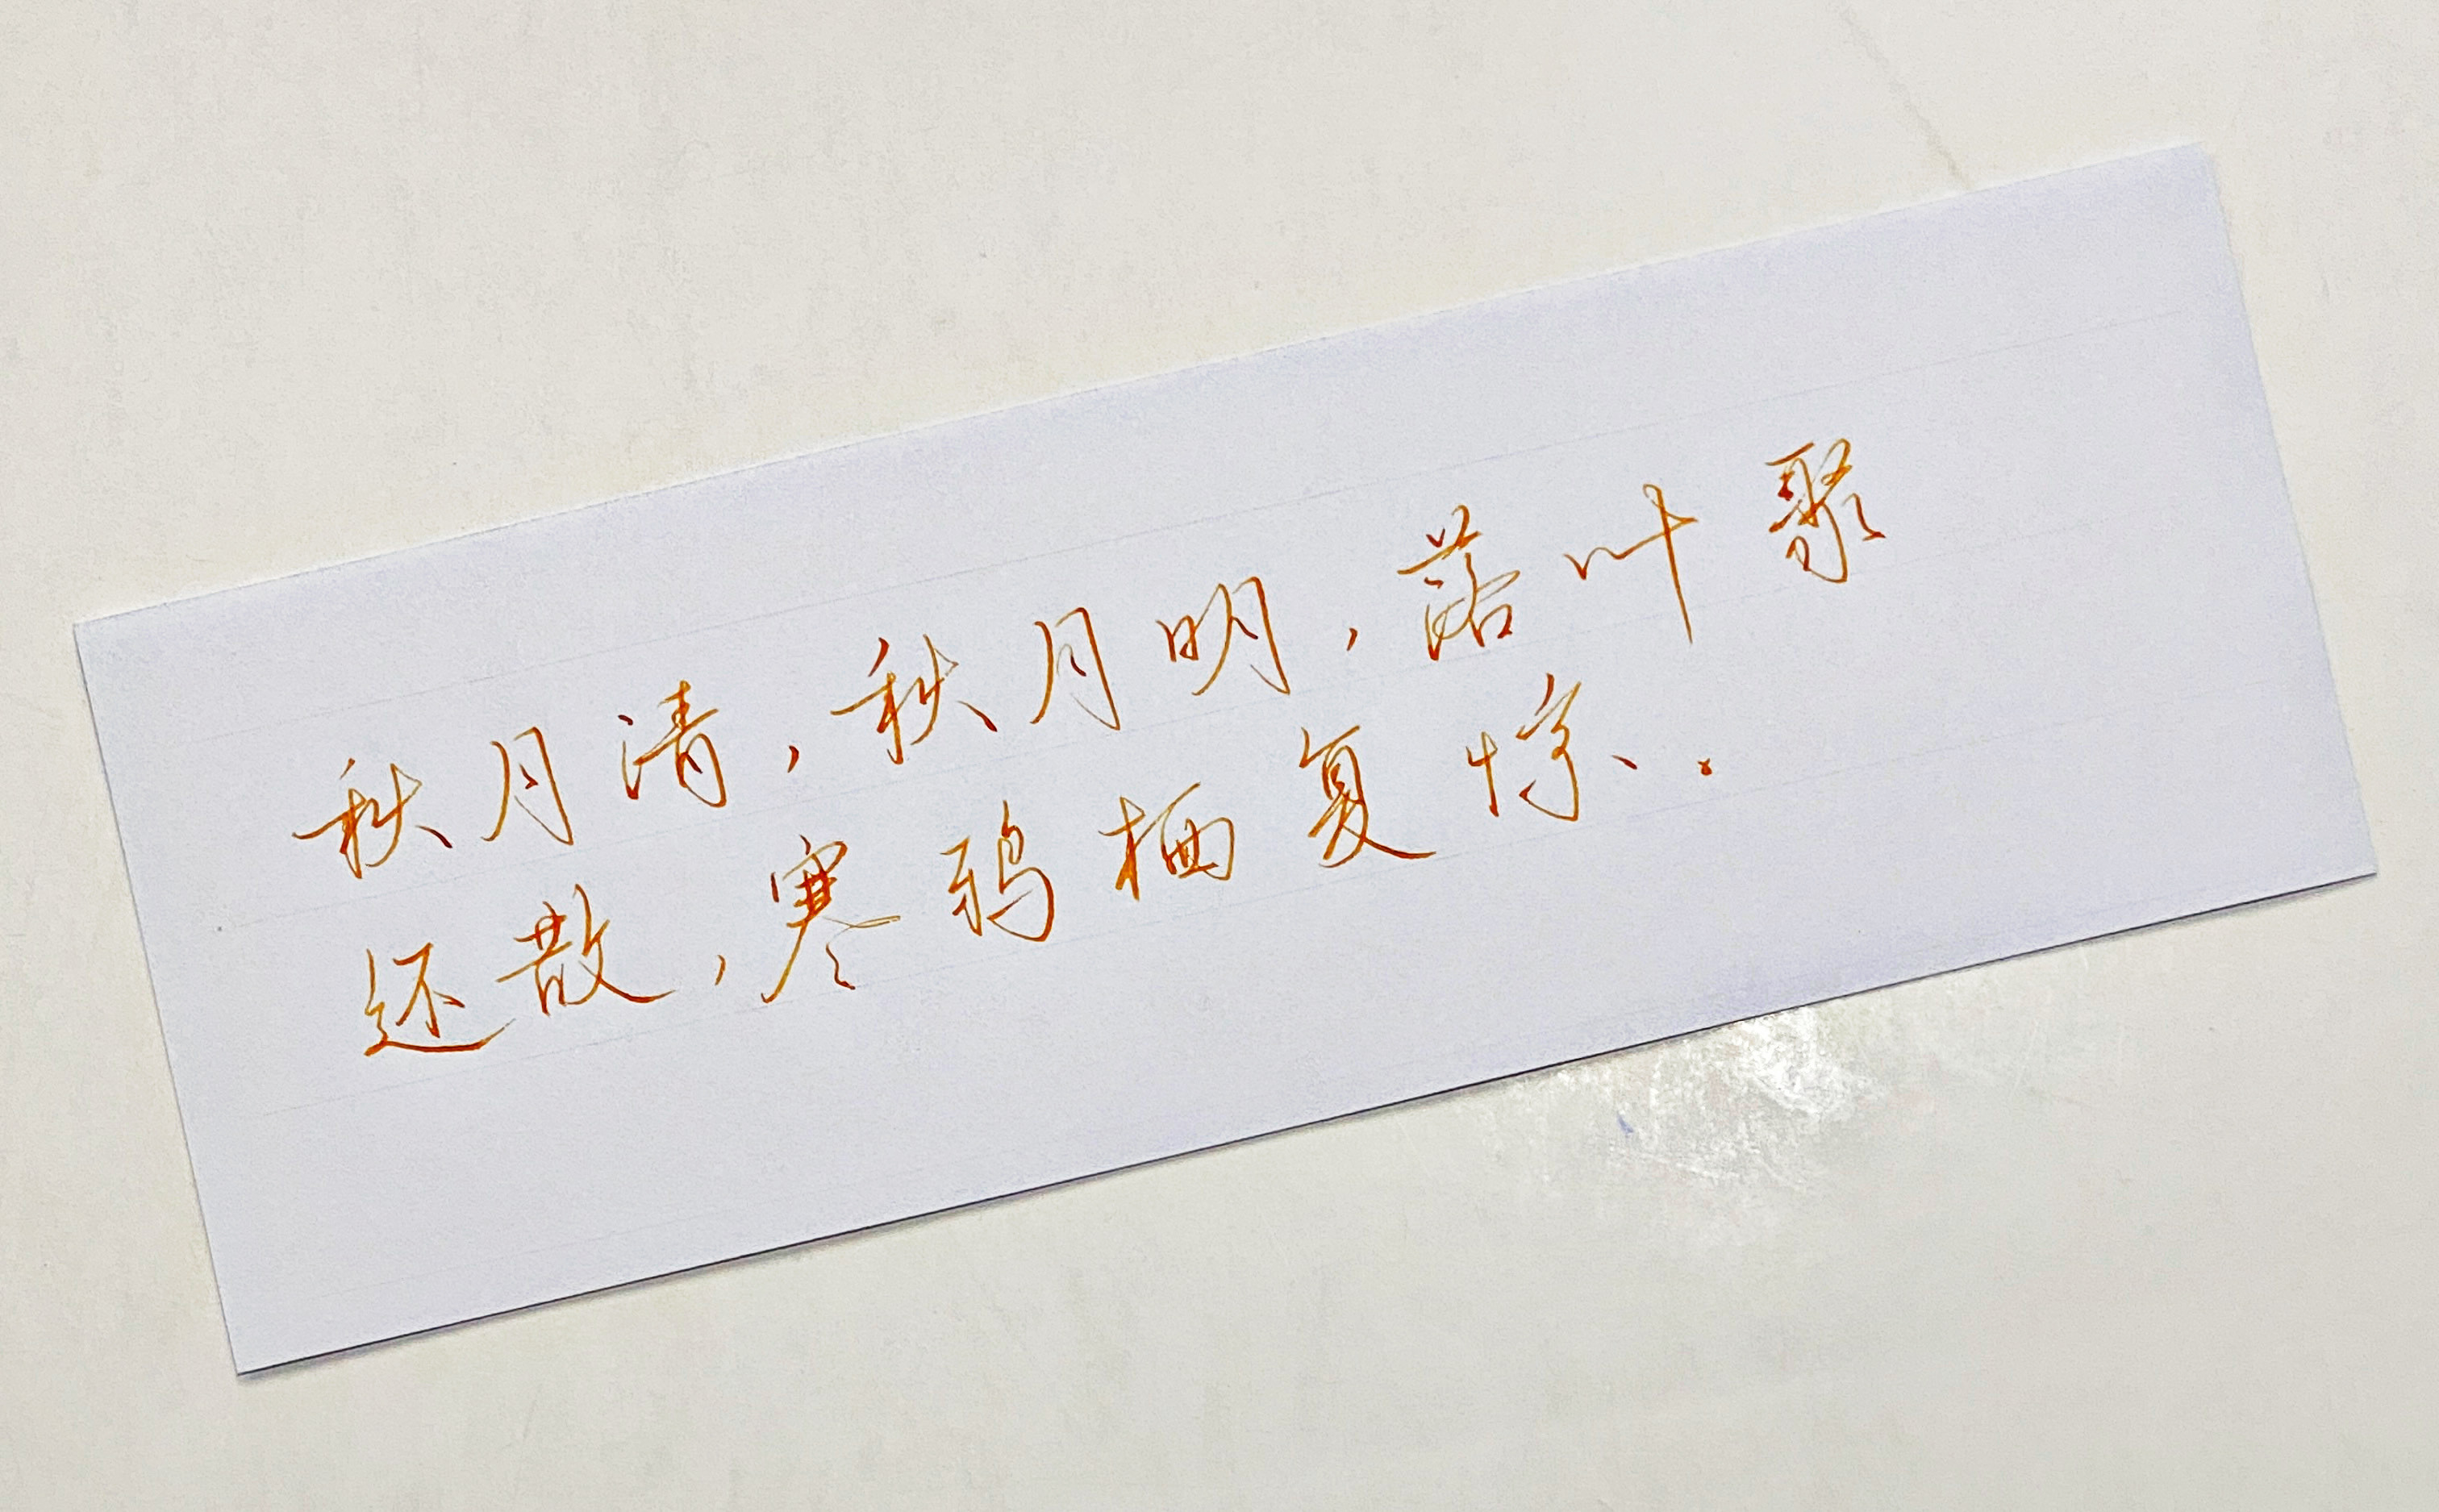 秋月清，秋月明，落叶聚
还散，寒鸦栖复惊。